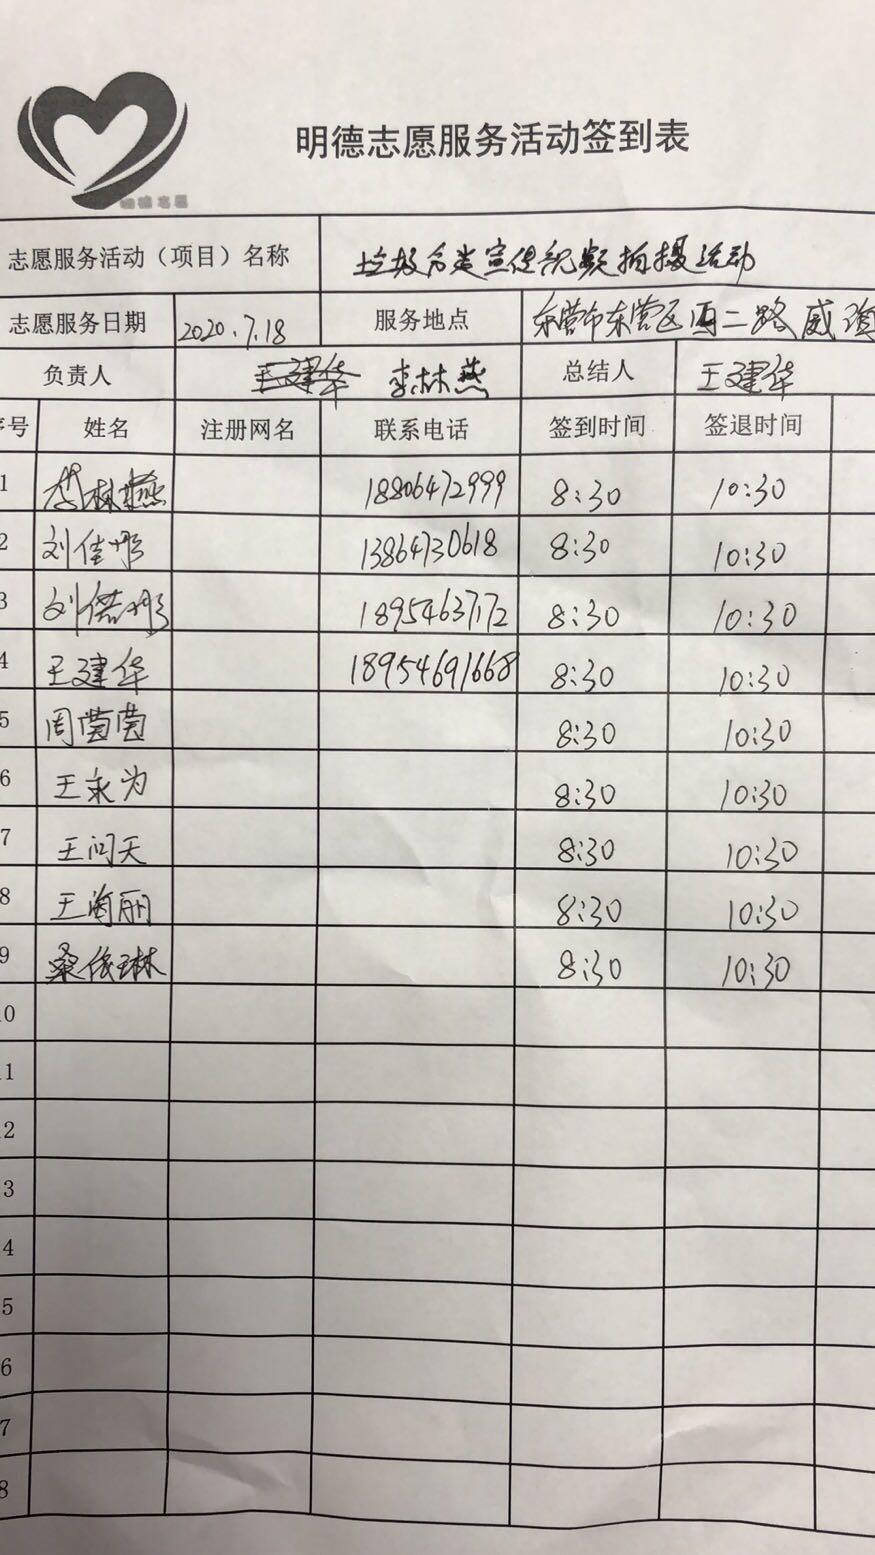 明德志愿
明德志愿服务活动签到表
志愿服务活动（项目）名称 垃圾分类宣传视频拍摄活动
志愿服务日期 2020.7.18 服务地点 东营市东营区西二路威
负责人 李林燕 总结人 王建华
序号 姓名 注册网名 联系电话 签到时间 签退时间
1 李林燕 18806472999 8:30 10:30
2 刘佳彤 13864730618 8:30 10:30
3 刘偌彤 18954637172 8:30 10:30
4 王建华 18954691668 8:30 10:30
5 周茵茵 8:30 10:30
6 王永为 8:30 10:30
7 王问天 8:30 10:30
8 王海丽 8:30 10:30
9 桑依琳 8:30 10:30
0
1
2
3
4
5
6
7
8